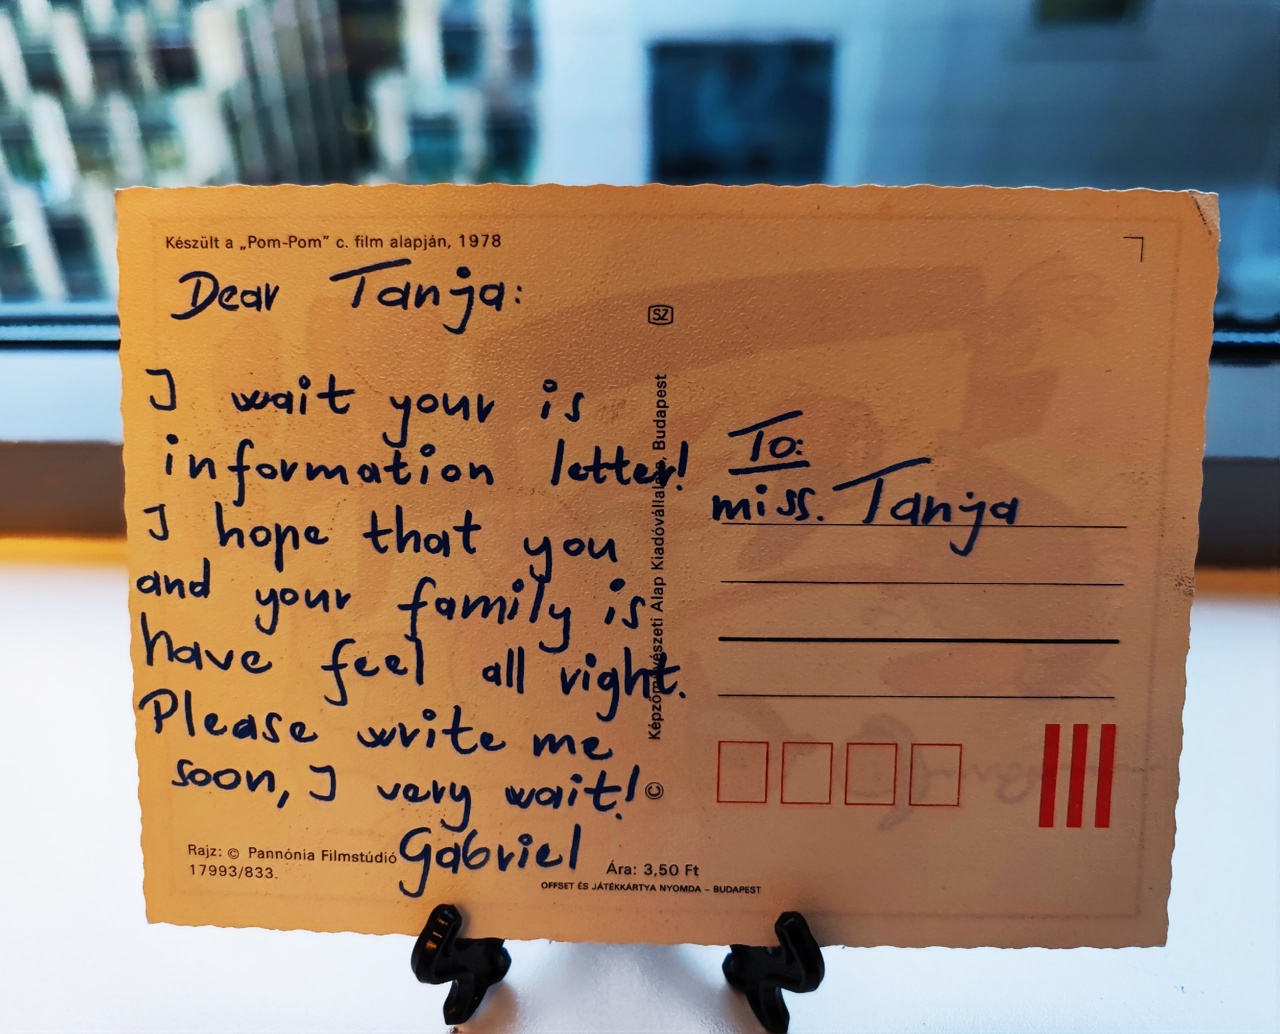 Készült a „Pom-Pom” c. film alapján, 1978
Dear Tanja:
I wait your is
information letter!
I hope that you
and your family is
have feel all right.
Please write me
soon, I very wait!
Gabriel
Rajz: © Pannónia Filmstúdió
17993/833.
Ára: 3,50 Ft
OFFSET ÉS JÁTÉKKÁRTYA NYOMDA – BUDAPEST
SZ
© Képzőművészeti Alap Kiadóvállalata, Budapest
To:
miss. Tanja